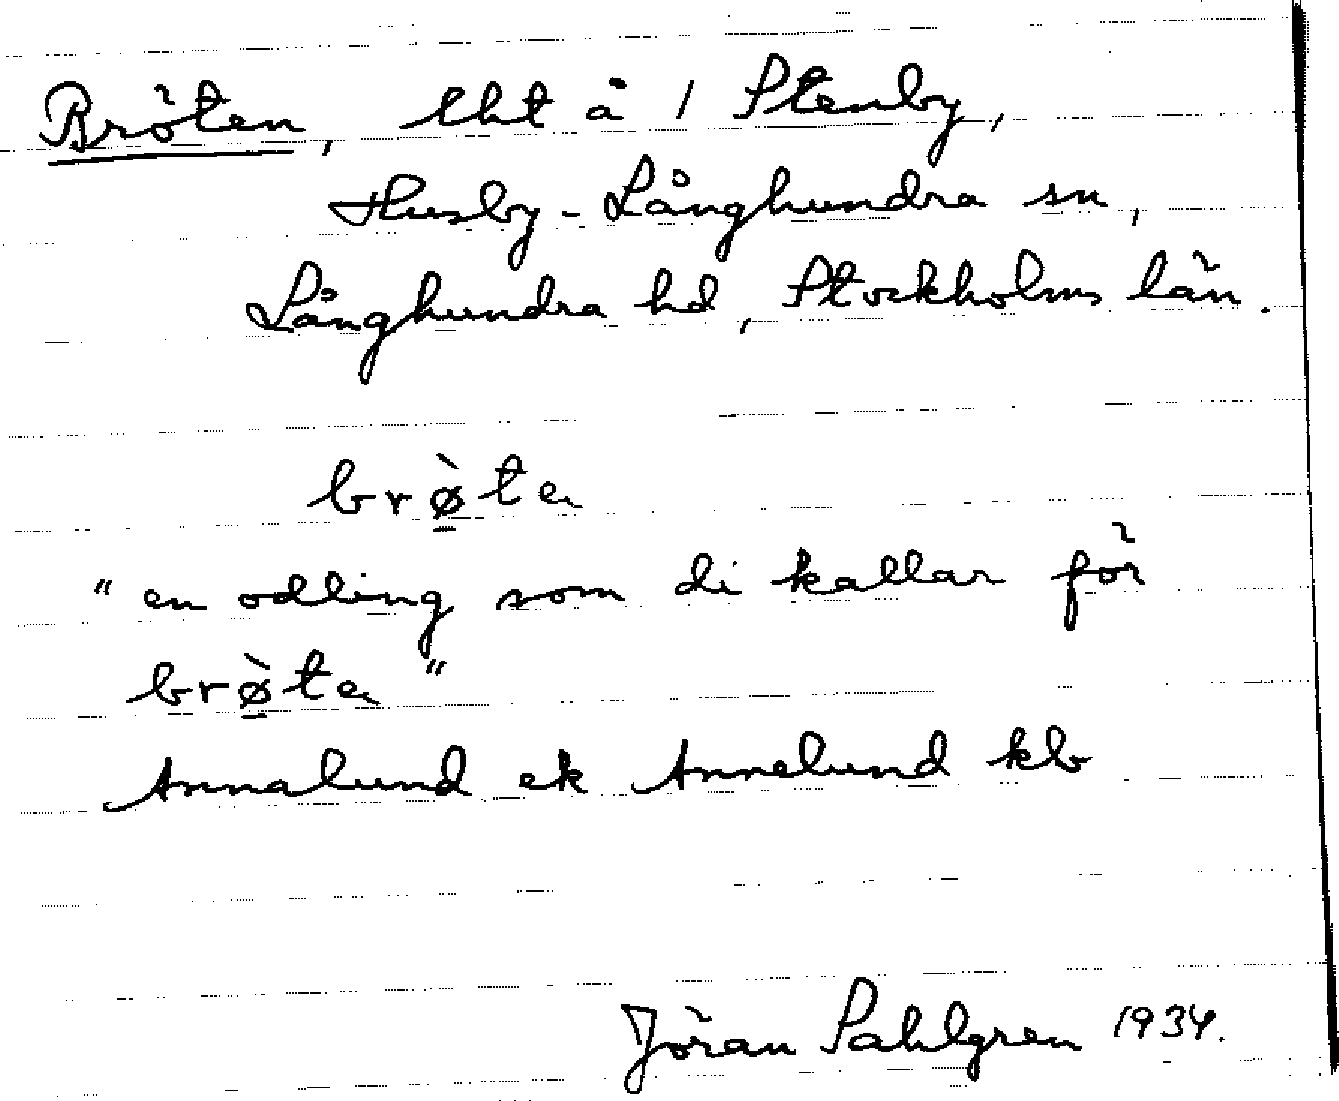 Bröten, lht å 1 Stenby,
Husby-Långhundra sn,
Långhundra hd, Stockholms län.
brø̀ta
"en odling som di kallar för
brø̀ta"
Annalund ek Annelund kb
Jöran Sahlgren 1934.